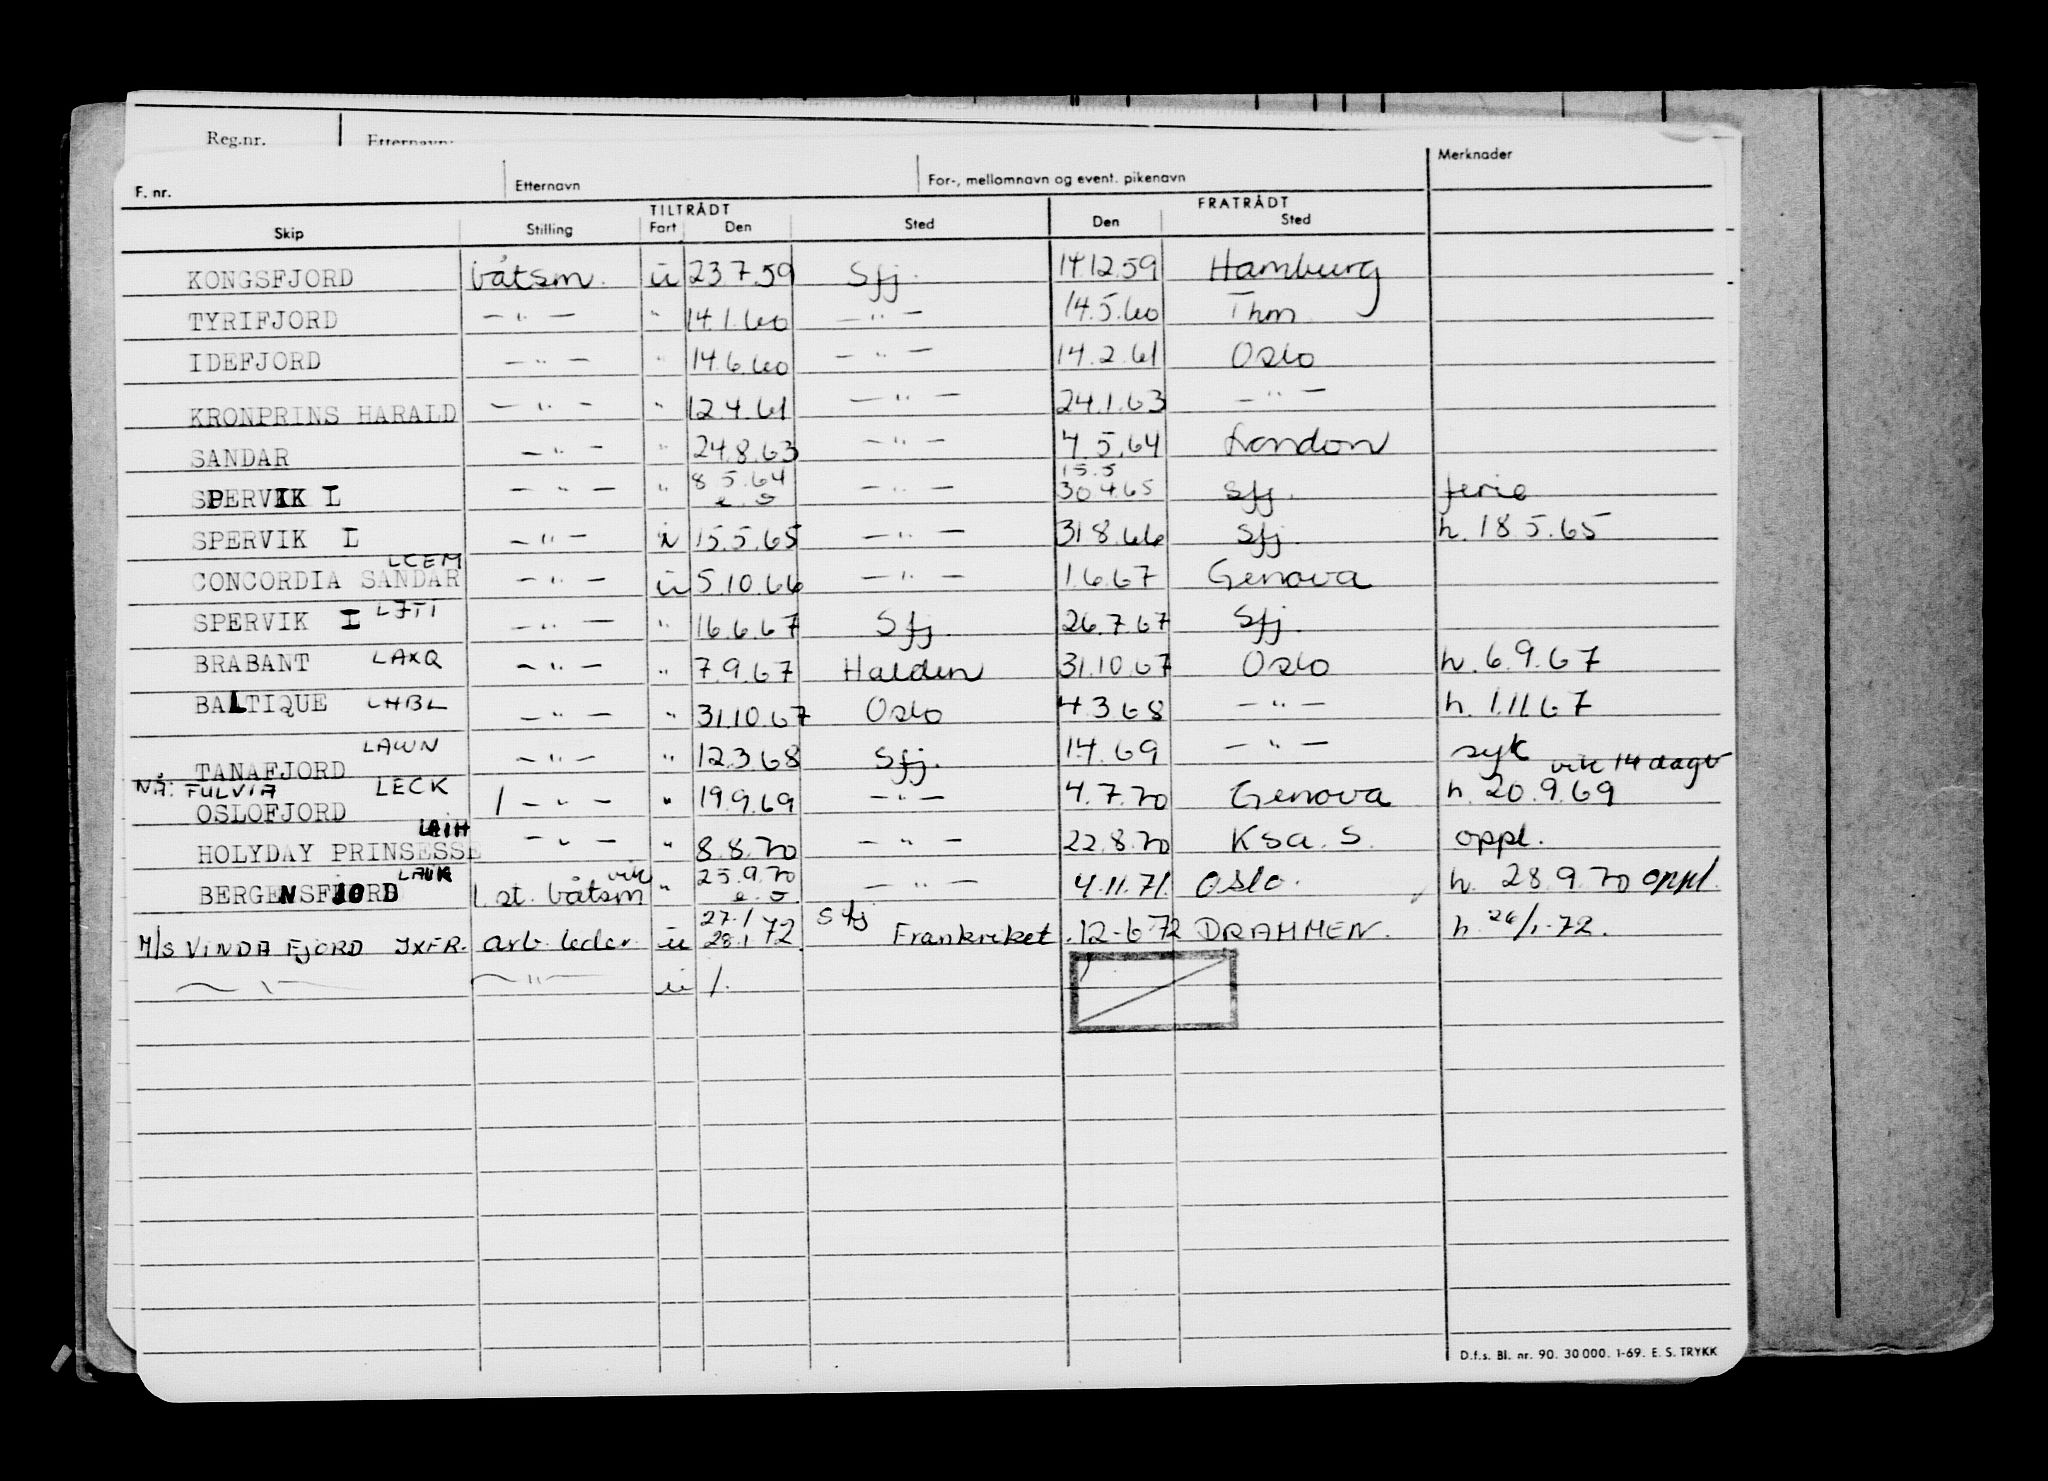 Reg.nr. Etternavn:
F. nr. Etternavn For-, mellomnavn og event. pikenavn Merknader
TILTRÅDT FRATRÅDT
Skip Stilling Fart Den Sted Den Sted
KONGSFJORD båtsm. u 23.7.59 Sfj. 14.12.59 Hamburg
TYRIFJORD — " — " 14.1.60 — " — 14.5.60 Thm
IDEFJORD — " — " 14.6.60 — " — 14.2.61 Oslo
KRONPRINS HARALD — " — " 12.4.61 — " — 24.1.63 — " —
SANDAR — " — " 24.8.63 — " — 4.5.64 London
15.5
SPERVIK I — " — " 8.5.64 e.o — " — 30.4.65 Sfj. ferie
SPERVIK I — " — i 15.5.65 — " — 31.8.66 Sfj. h. 18.5.65
LCEM
CONCORDIA SANDAR — " — u 5.10.66 — " — 1.6.67 Genova
SPERVIK I LJTI — " — " 16.6.67 Sfj. 26.7.67 Sfj.
BRABANT LAXQ — " — " 7.9.67 Halden 31.10.67 Oslo h. 6.9.67
BALTIQUE LHBL — " — " 31.10.67 Oslo 4.3.68 — " — h. 1.11.67
LAWN
TANAFJORD — " — " 12.3.68 Sfj. 14.69 — " — syk vik 14 dager
NÅ: FULVIA LECK
OSLOFJORD 1 — " — " 19.9.69 — " — 4.7.70 Genova h. 20.9.69
LAIH
HOLYDAY PRINSESSE — " — " 8.8.70 — " — 22.8.70 Ksa. S. oppl.
vik
BERGENSFJORD 1. st. båtsm " 25.9.70 e.o — " — 4.11.71. Oslo. h. 28.9.70 oppl.
27.1 Sfj
M/S VINDAFJORD JXFR. arb. leder. u 28.1 72. Frankriket .12-6-72 DRAMMEN. h. 26/1-72.
— " — — " — u /.
D.f.s. Bl. nr. 90. 30 000. 1-69. E. S. TRYKK